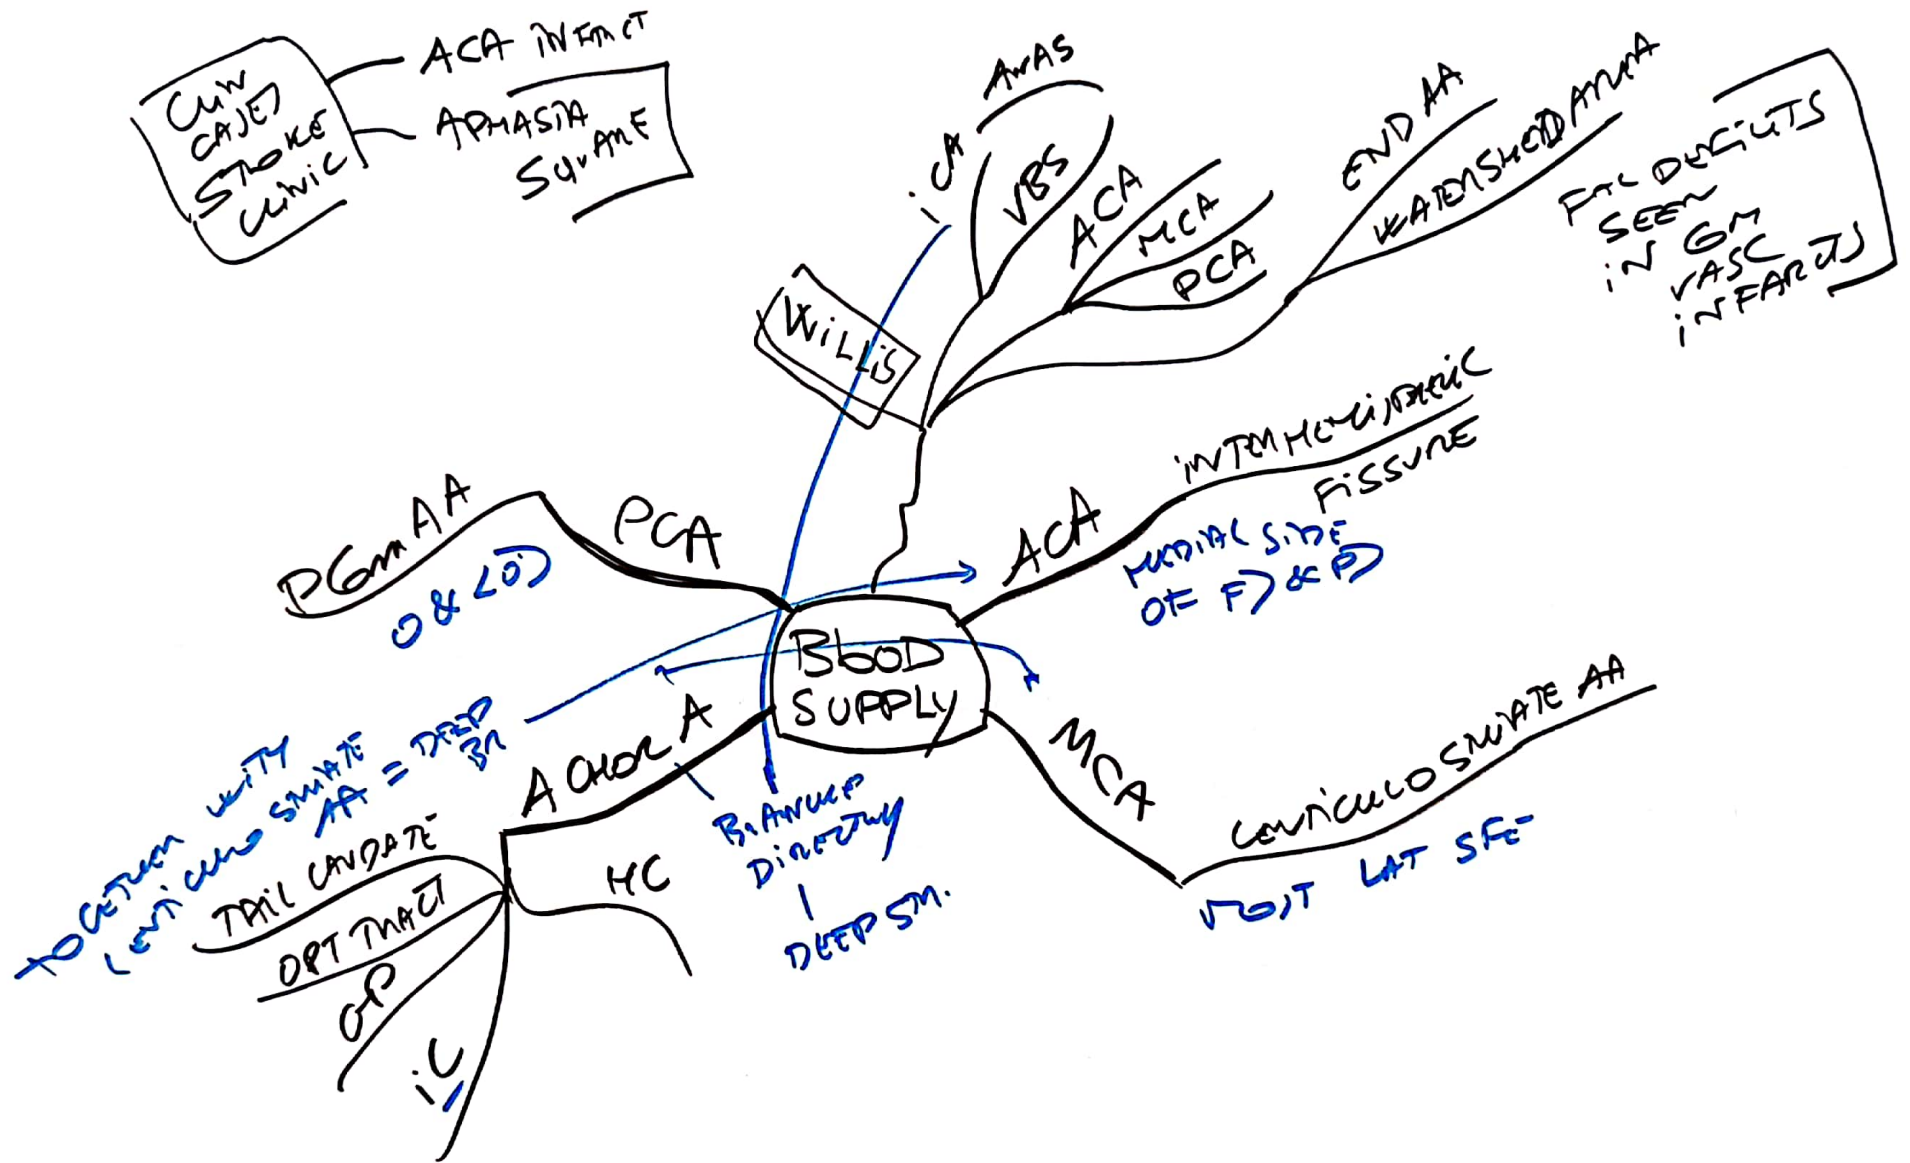 CLIN
CASES
STROKE
CLINIC
ACA INFARCT
APHASIA
SQUARE
ANAS
ICA
VBS
ACA
MCA
PCA
END AA
WATERSHED AREA
DEFICITS
SEEN
IN 6M
VASC
INFARCTS
WILLIS
INTERHEMISPHERIC
FISSURE
ACA
MEDIAL SIDE
OF F) & P)
PCA
AA
O & (O)
BLOOD
SUPPLY
MCA
LENTICULOSTRIATE AA
MOST LAT SFE
A CHOR A
BRANCHED
DIRECTLY
DEEP STR.
TOGETHER WITH
LENTICULO STRIATE
AA = DEEP
BR
TAIL CAUDATE
OPT TRACT
GP
IC
HC